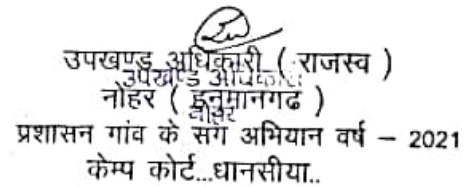 उपखण्ड अधिकारी ( राजस्व )
उपखण्ड अधिकारी
नोहर ( हनुमानगढ )
नोहर
प्रशासन गांव के संग अभियान वर्ष – 2021
केम्प कोर्ट...धानसीया..